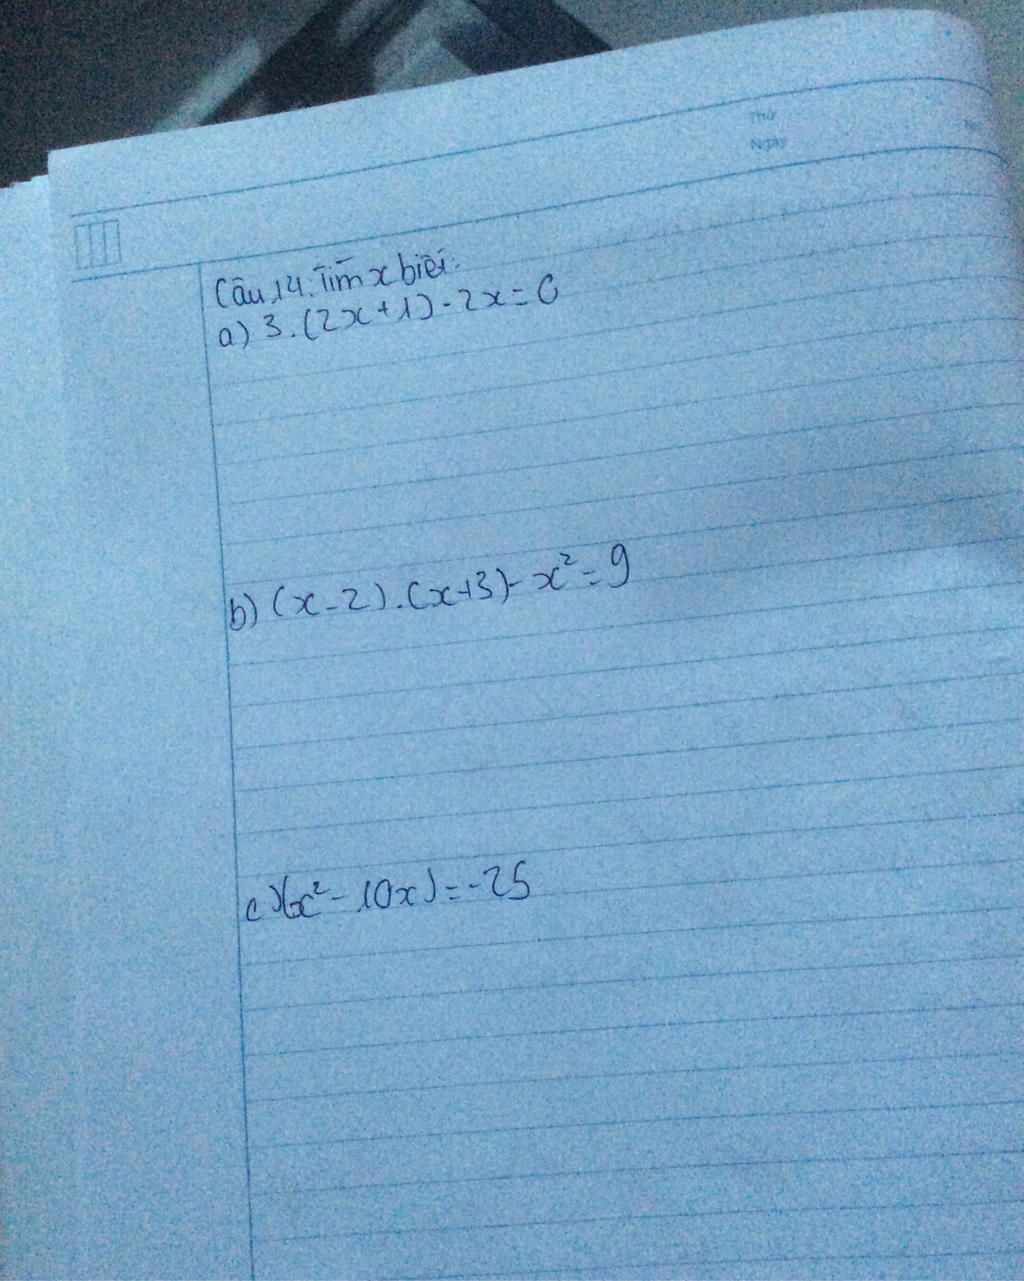 Thứ
Ngày
Câu 14. Tìm x biết:
a) 3.(2x+1)-2x=0
b) (x-2).(x+3)-x²=9
c) (x²-10x)=-25